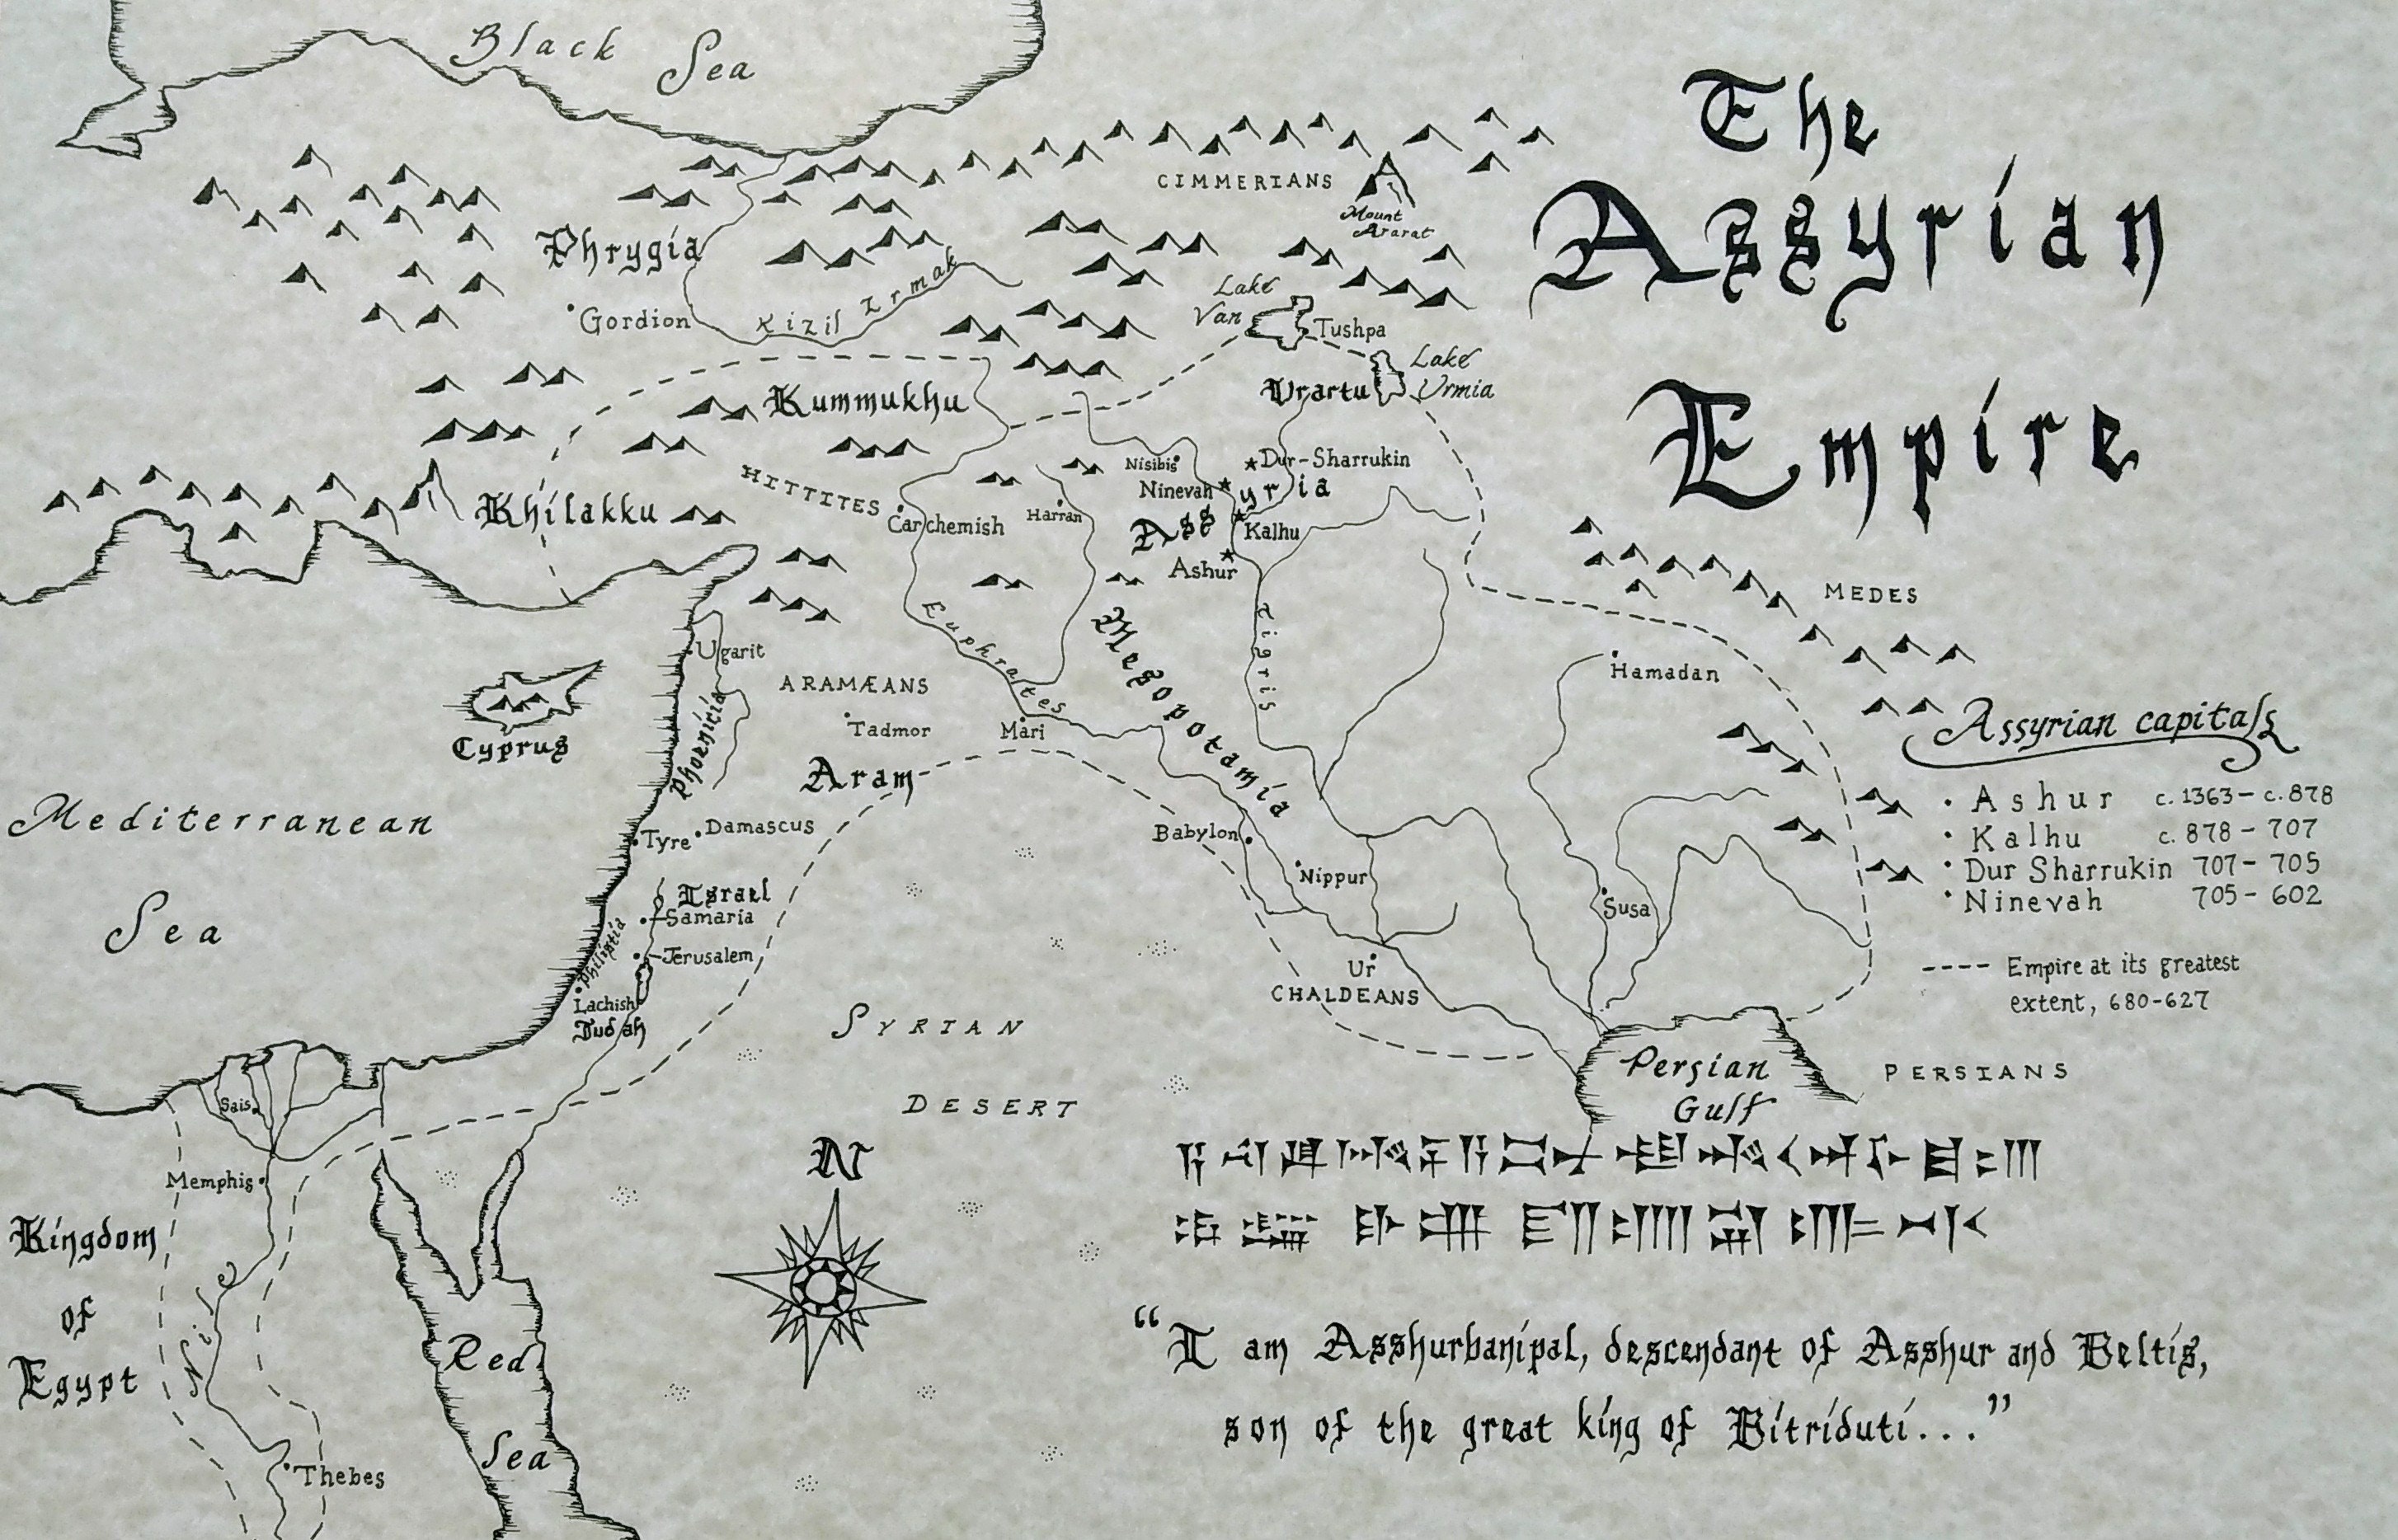 Black Sea
The
Assyrian
Empire
CIMMERIANS
Mount
Ararat
Phrygia
Gordion
Kizil Irmak
Lake
Van
Tushpa
Lake
Urmia
Urartu
Kummukhu
HITTITES
Khilakku
Carchemish
Harran
Nisibis
Dur-Sharrukin
Ninevah
Assyria
Kalhu
Ashur
MEDES
Euphrates
Mesopotamia
Tigris
Ugarit
ARAMÆANS
Hamadan
Phoenicia
Tadmor
Mari
Cyprus
Aram
Mediterranean
Sea
Tyre
Damascus
Babylon
Nippur
Susa
Israel
Samaria
Philistia
Jerusalem
Lachish
Judah
Ur
CHALDEANS
Assyrian capitals
• Ashur c. 1363 – c. 878
• Kalhu c. 878 – 707
• Dur Sharrukin 707 – 705
• Ninevah 705 – 602
---- Empire at its greatest
extent, 680-627
SYRIAN
DESERT
Persian
Gulf
PERSIANS
Sais
Memphis
Kingdom
of
Egypt
Nile
Thebes
Red
Sea
N
“I am Asshurbanipal, descendant of Asshur and Beltis,
son of the great king of Bitriduti...”